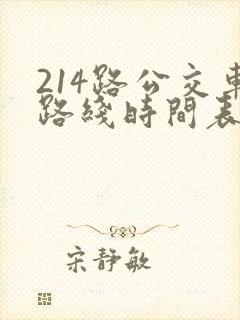 214路公交車
路綫時間表
宋静敏